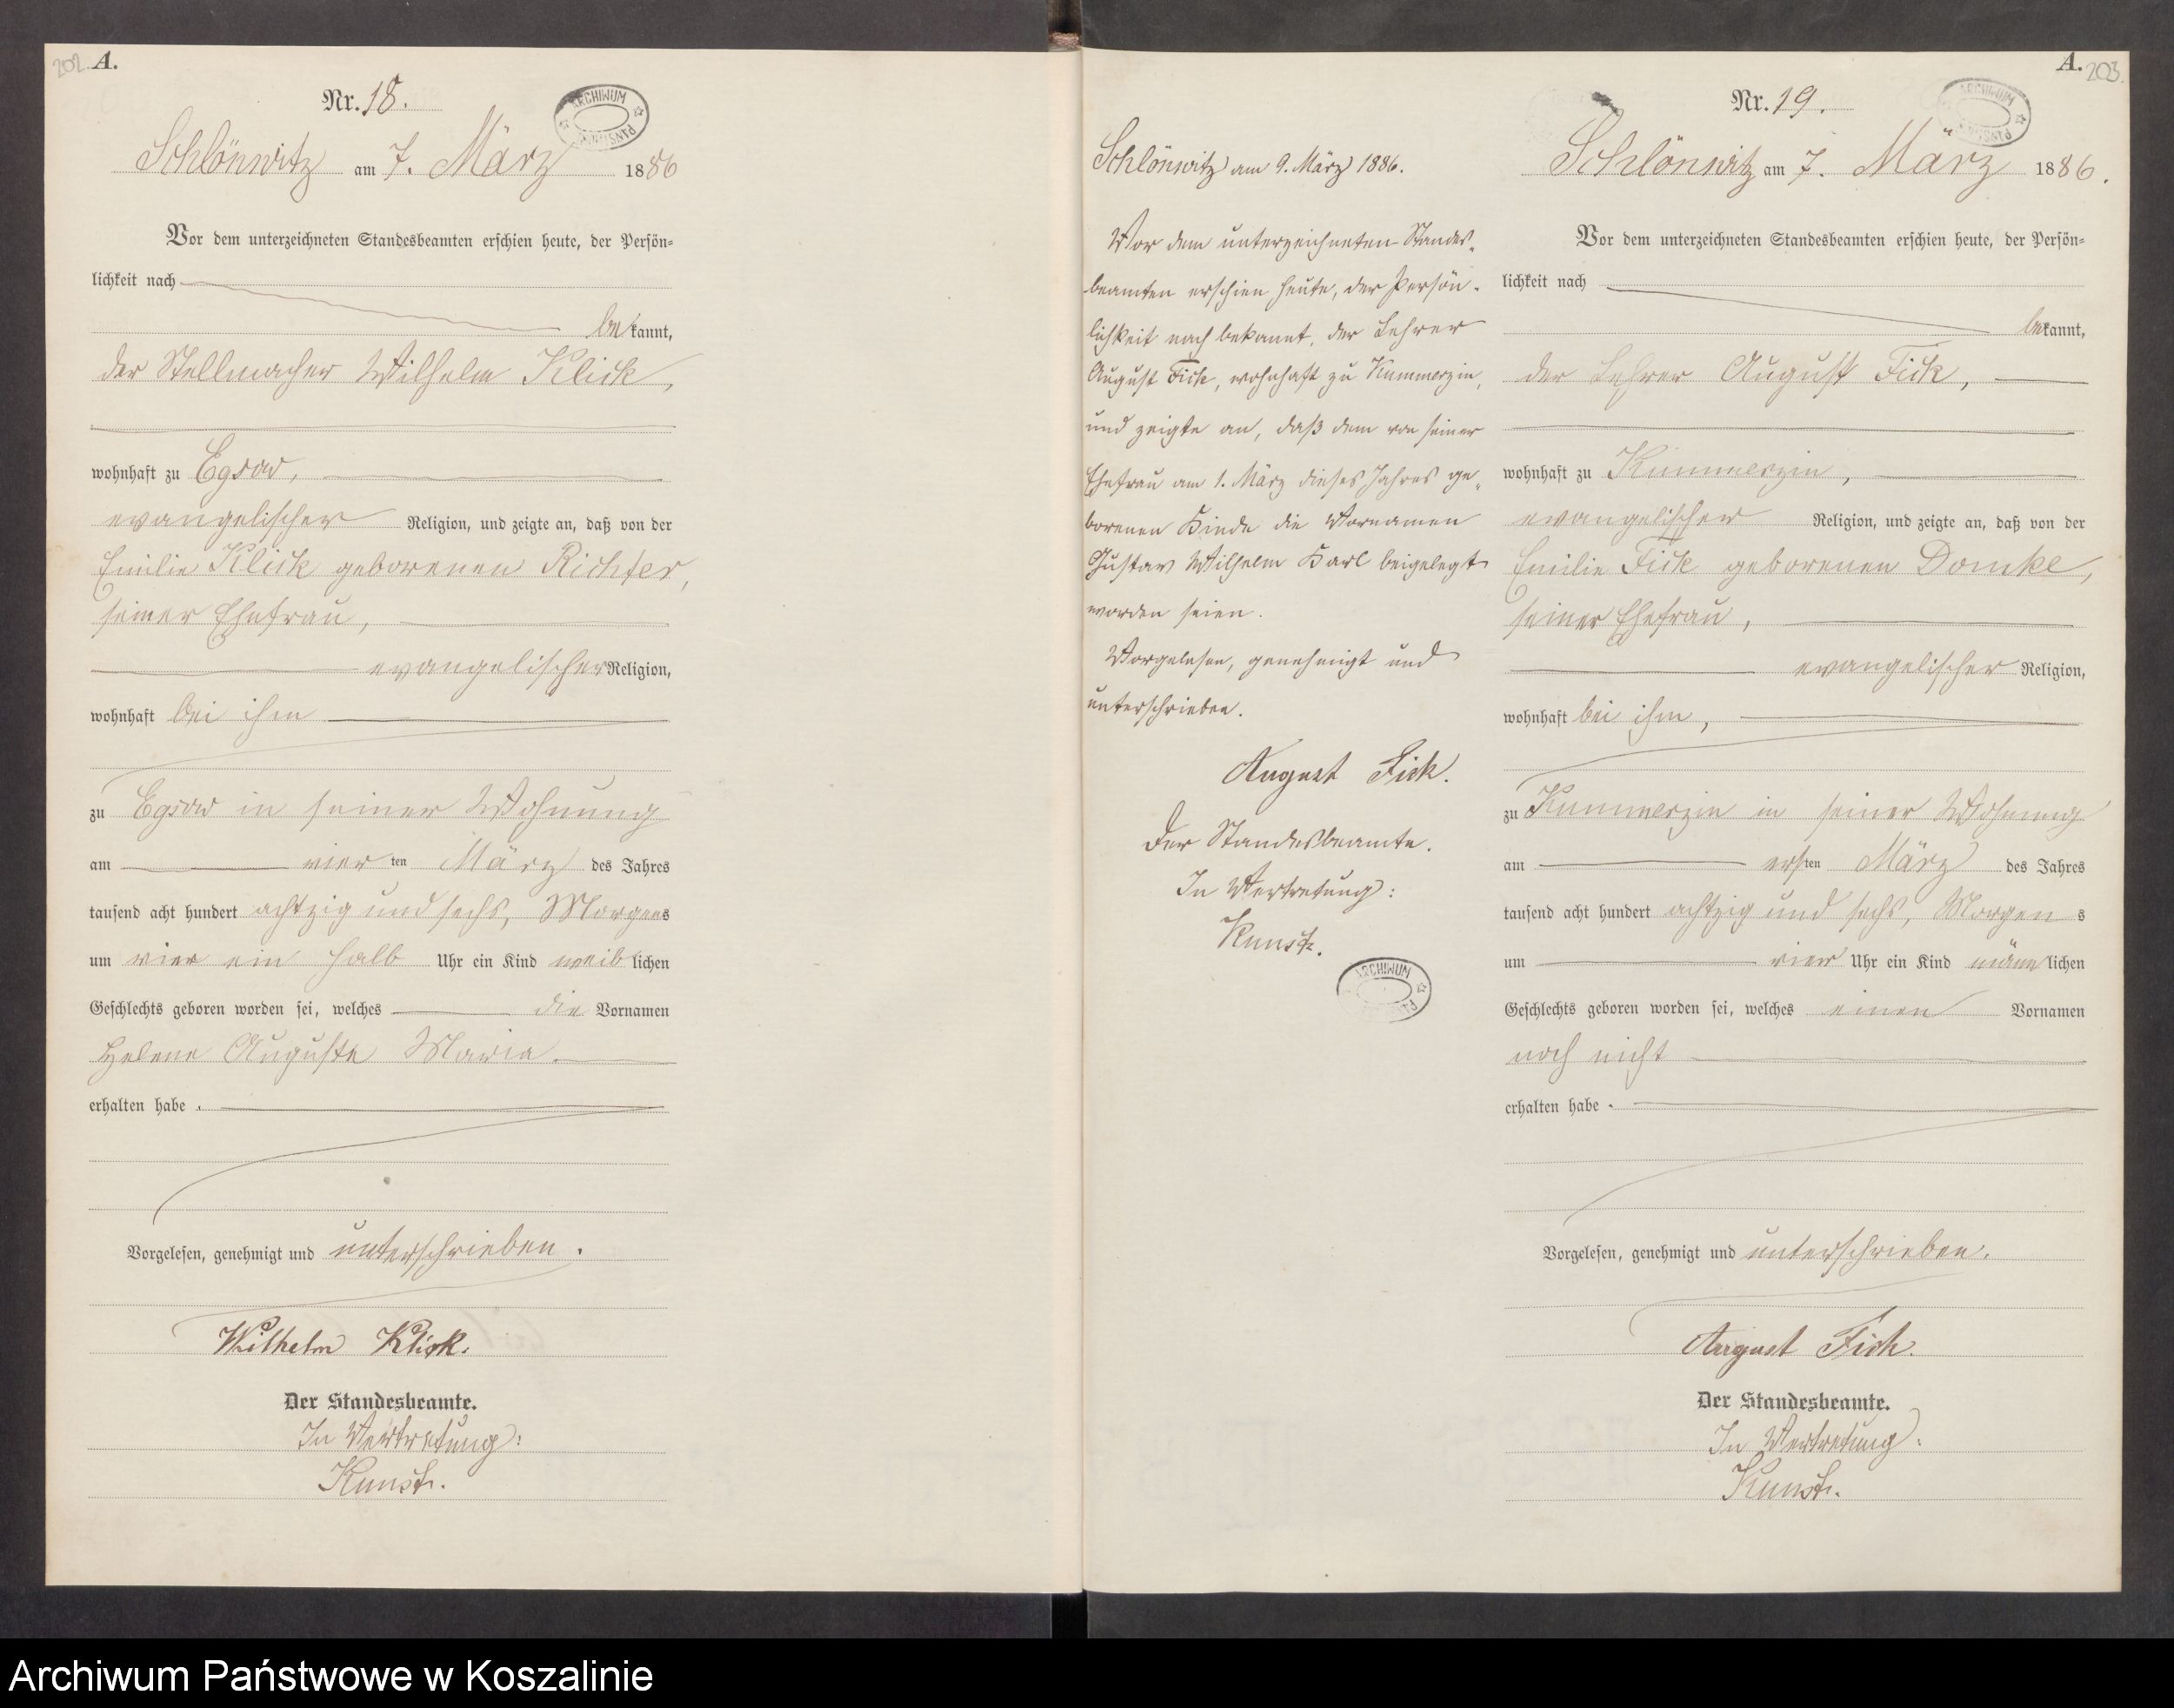 202. A.
Nr. 18.
ARCHIWUM PAŃSTW
Schlönwitz am 7. März 1886
Vor dem unterzeichneten Standesbeamten erschien heute, der Persön=
lichkeit nach
bekannt,
der Stellmacher Wilhelm Klick,
wohnhaft zu Egsow,
evangelischer Religion, und zeigte an, daß von der
Emilie Klick geborenen Richter,
seiner Ehefrau,
evangelischer Religion,
wohnhaft bei ihm
zu Egsow in seiner Wohnung
am vierten März des Jahres
tausend acht hundert achtzig und sechs, Morgens
um vier ein halb Uhr ein Kind weiblichen
Geschlechts geboren worden sei, welches die Vornamen
Helene Auguste Maria
erhalten habe.
Vorgelesen, genehmigt und unterschrieben.
Wilhelm Klick.
Der Standesbeamte.
In Vertretung:
Schlönwitz am 9. März 1886.
Vor dem unterzeichneten Standes=
beamten erschien heute, der Persön=
lichkeit nach bekannt, der Lehrer
August Fick, wohnhaft zu Kummerzin,
und zeigte an, daß dem von seiner
Ehefrau am 1. März dieses Jahres ge=
borenen Kinde die Vornamen
Gustav Wilhelm Karl beigelegt
worden seien.
Vorgelesen, genehmigt und
unterschrieben.
August Fick.
Der Standesbeamte.
In Vertretung:
ARCHIWUM
A. 203.
Nr. 19.
ARCHIWUM PAŃSTW
Schlönwitz am 7. März 1886.
Vor dem unterzeichneten Standesbeamten erschien heute, der Persön=
lichkeit nach
bekannt,
der Lehrer August Fick,
wohnhaft zu Kummerzin,
evangelischer Religion, und zeigte an, daß von der
Emilie Fick geborenen Domke,
seiner Ehefrau,
evangelischer Religion,
wohnhaft bei ihm,
zu Kummerzin in seiner Wohnung
am ersten März des Jahres
tausend acht hundert achtzig und sechs, Morgens
um vier Uhr ein Kind männlichen
Geschlechts geboren worden sei, welches einen Vornamen
noch nicht
erhalten habe.
Vorgelesen, genehmigt und unterschrieben.
August Fick.
Der Standesbeamte.
In Vertretung:
Archiwum Państwowe w Koszalinie